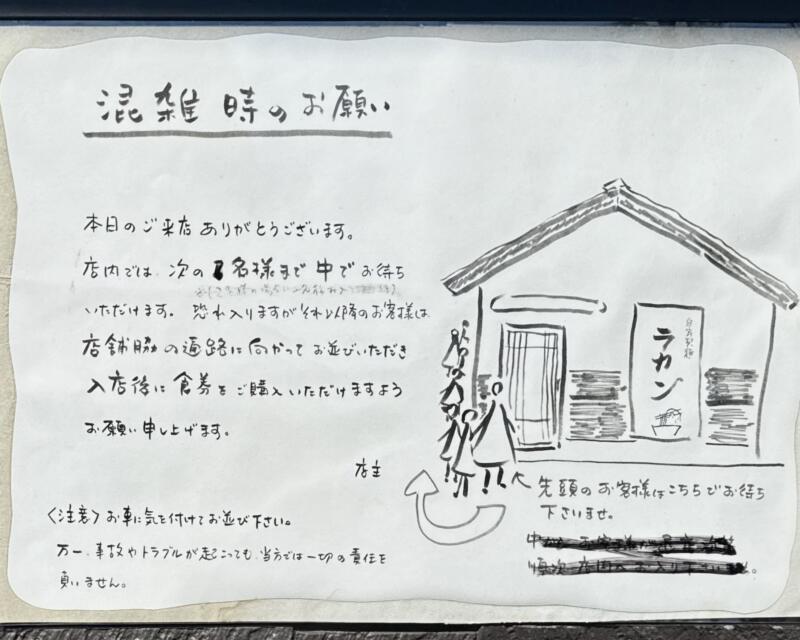 混雑時のお願い
本日のご来店ありがとうございます。
店内では、次の7名様まで中でお待ち
いただけます。恐れ入りますがそれ以降のお客様は
店舗脇の通路に向かってお並びいただき
入店後に食券をご購入いただけますよう
お願い申し上げます。
店主
〈注意〉お車に気を付けてお並び下さい。
万一、事故やトラブルが起こっても、当方では一切の責任を
負いません。
自家製麺
ラカン
先頭のお客様はこちらでお待ち
下さいませ。